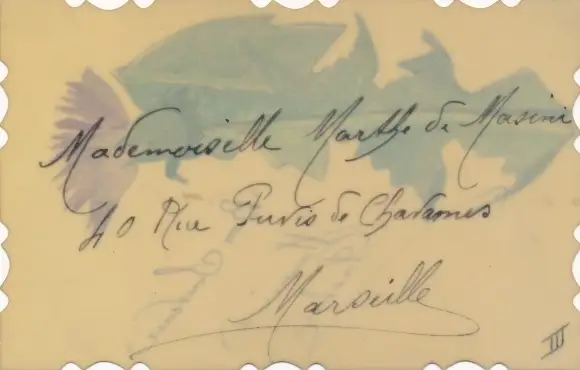 Mademoiselle Marthe de Masini
40 Rue Puvis de Chavannes
Marseille
III